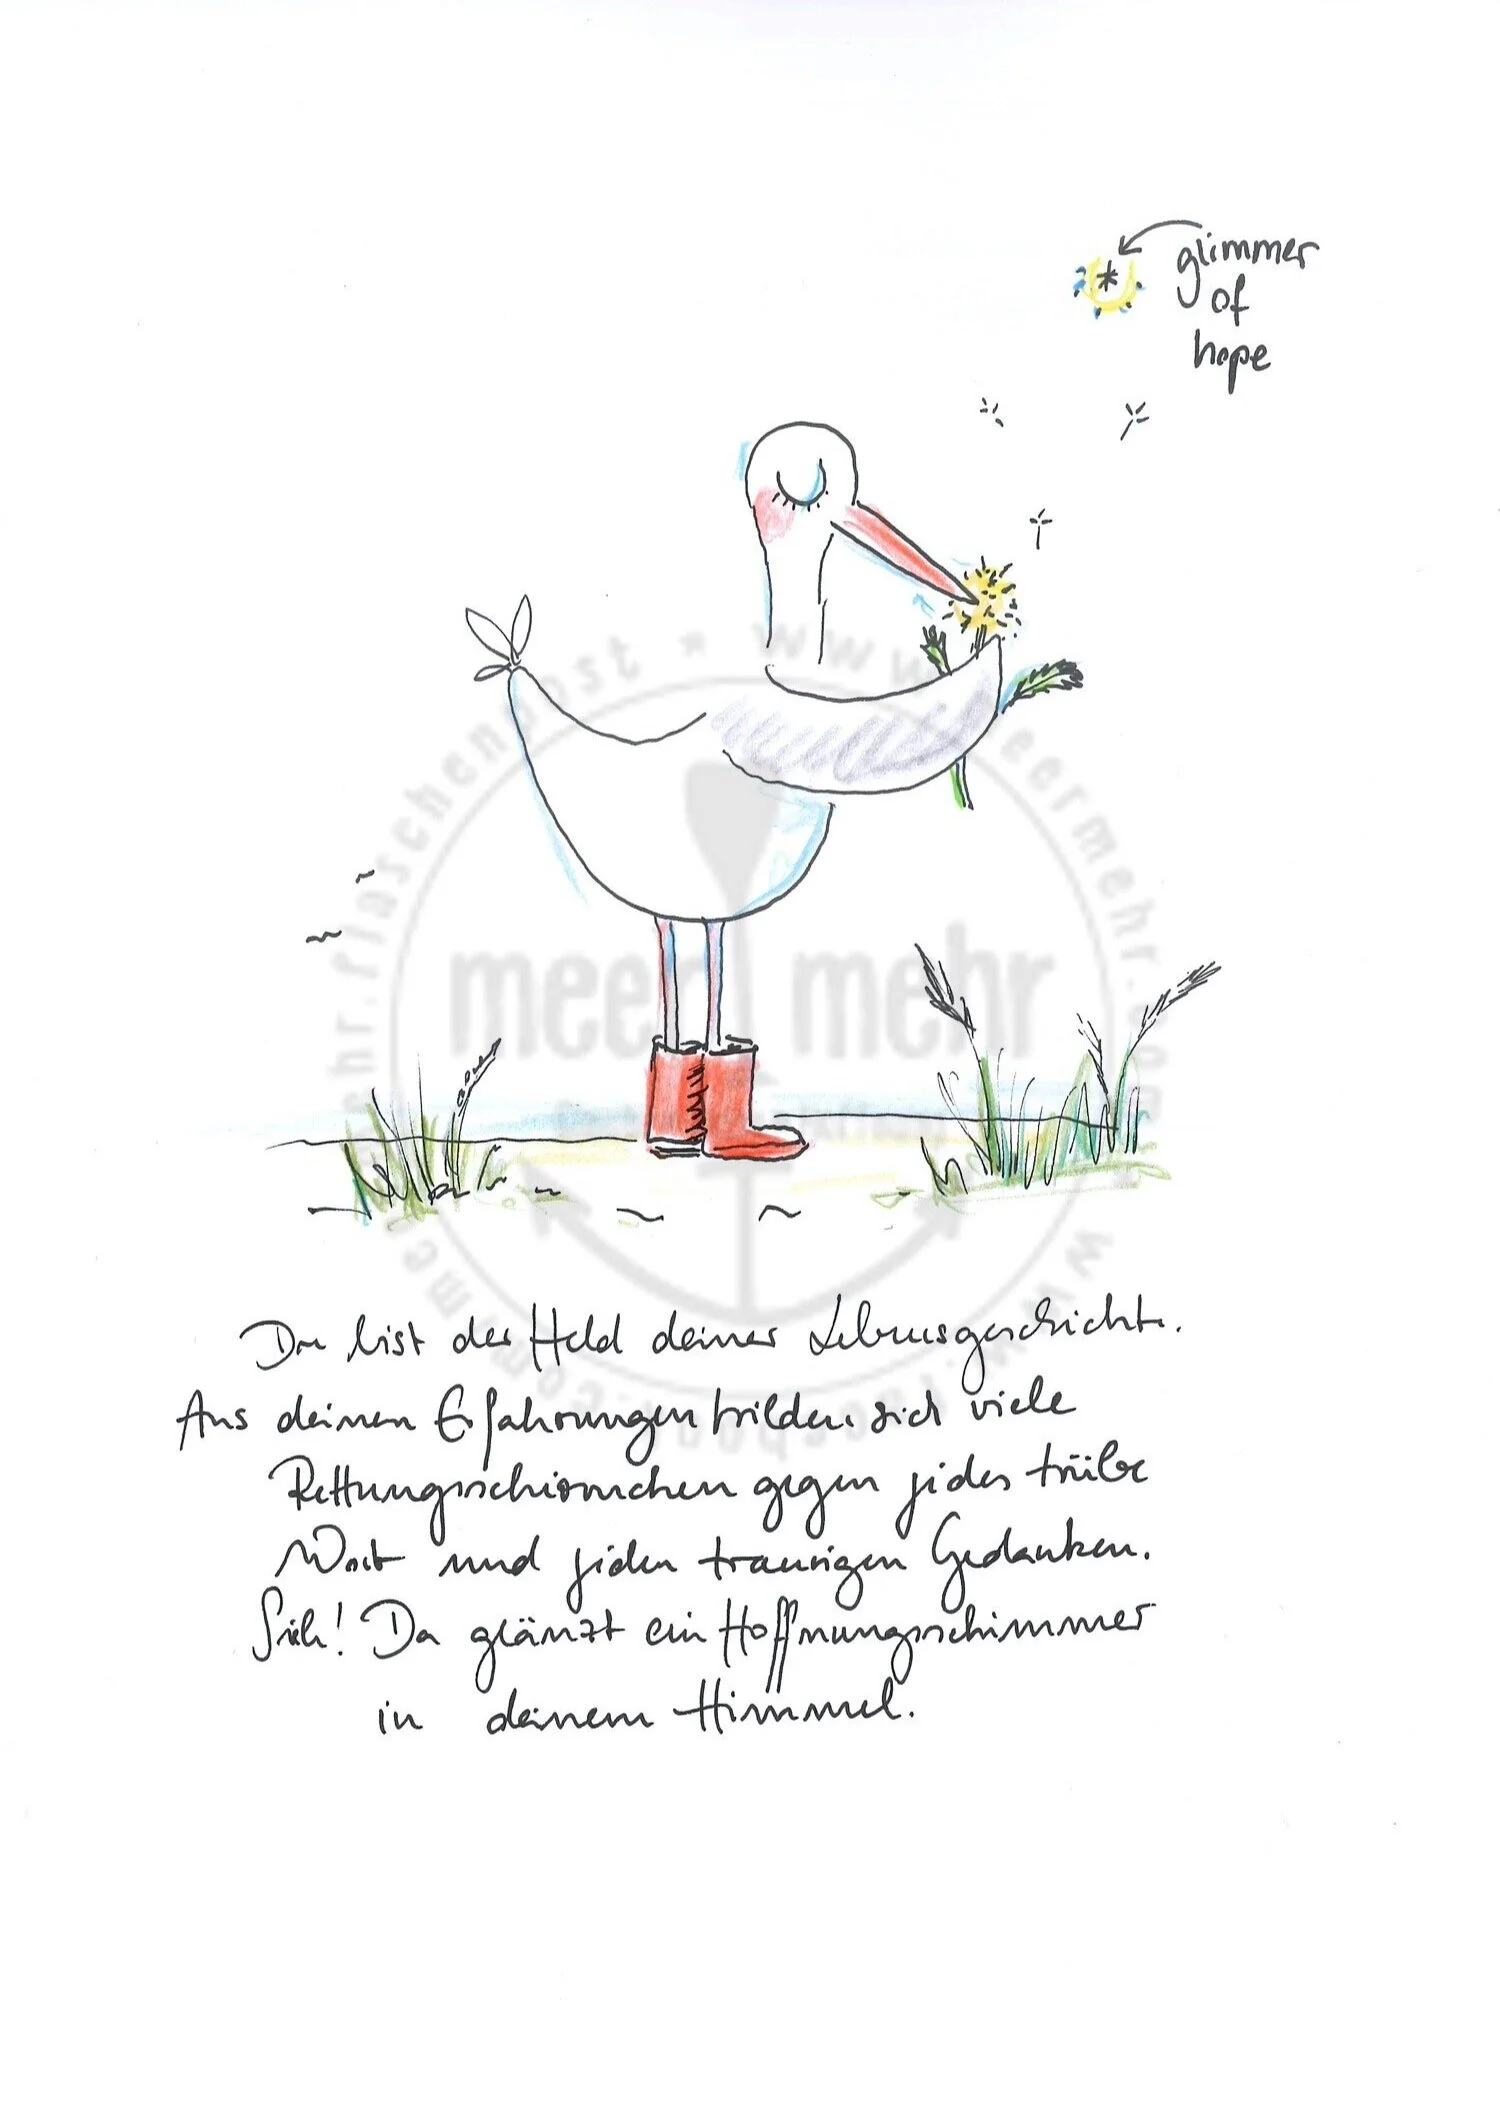 glimmer
of
hope
meer mehr
Du bist der Held deiner Lebensgeschichte.
Aus deinen Erfahrungen bilden sich viele
Rettungsschirmchen gegen jedes trübe
Wort und jeden traurigen Gedanken.
Sieh! Da glänzt ein Hoffnungsschimmer
in deinem Himmel.